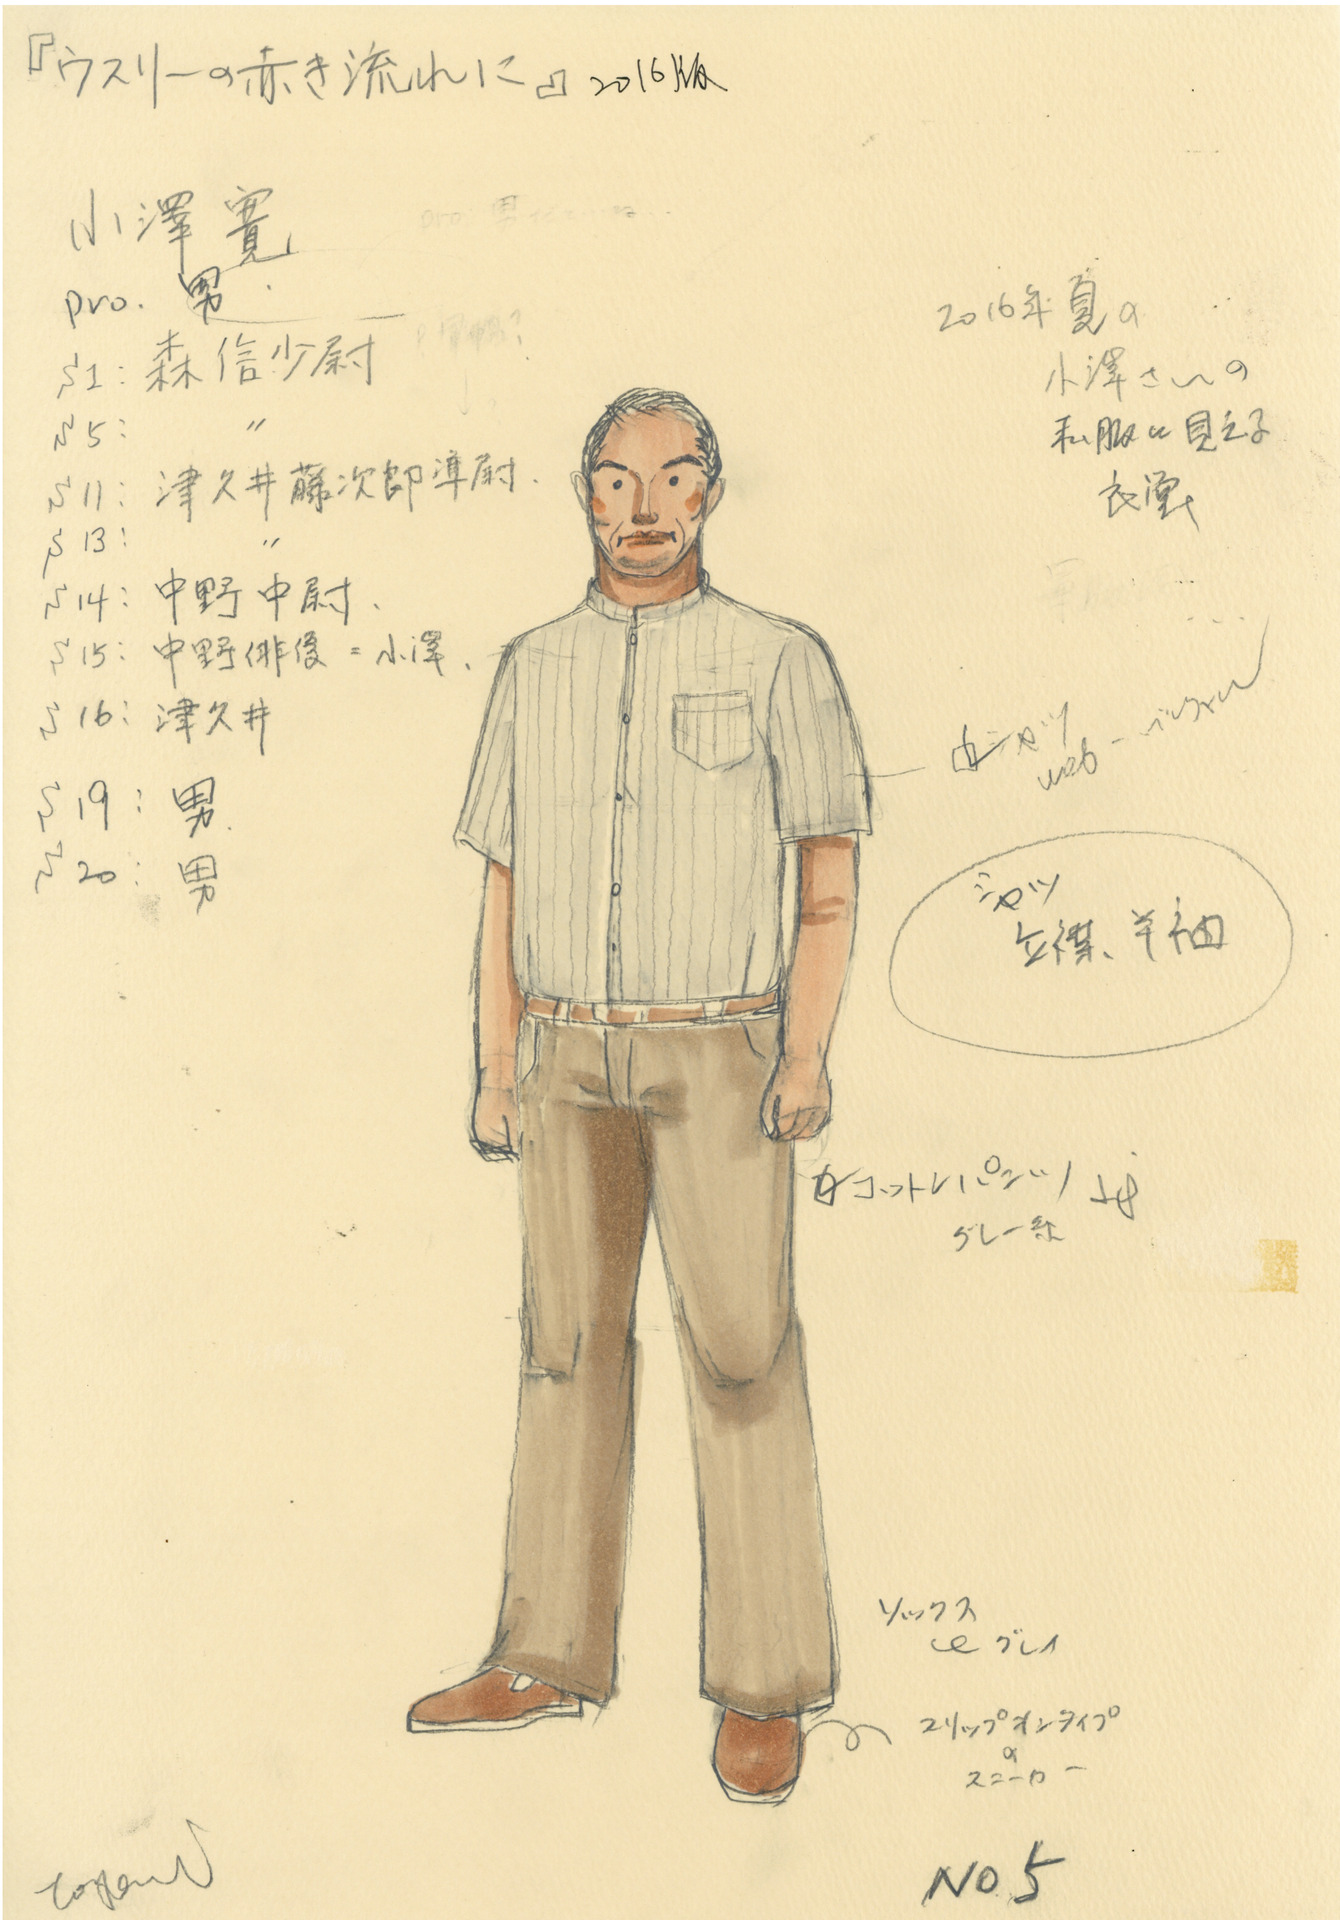 『ウスリーの赤き流れに』2016版
小澤 寛
pro. 男.
S1: 森 信少尉
S5: 〃
S11: 津久井藤次郎準尉.
S13: 〃
S14: 中野中尉.
S15: 中野俳優=小澤.
S16: 津久井
S19: 男.
S20: 男
2016年夏の
小澤さんの
私服に見える
衣裳
白シャツ
シャツ
立襟、半袖
コットンパンツ
グレー系
ソックス
グレイ
スリップオンタイプ
の
スニーカー
NO.5